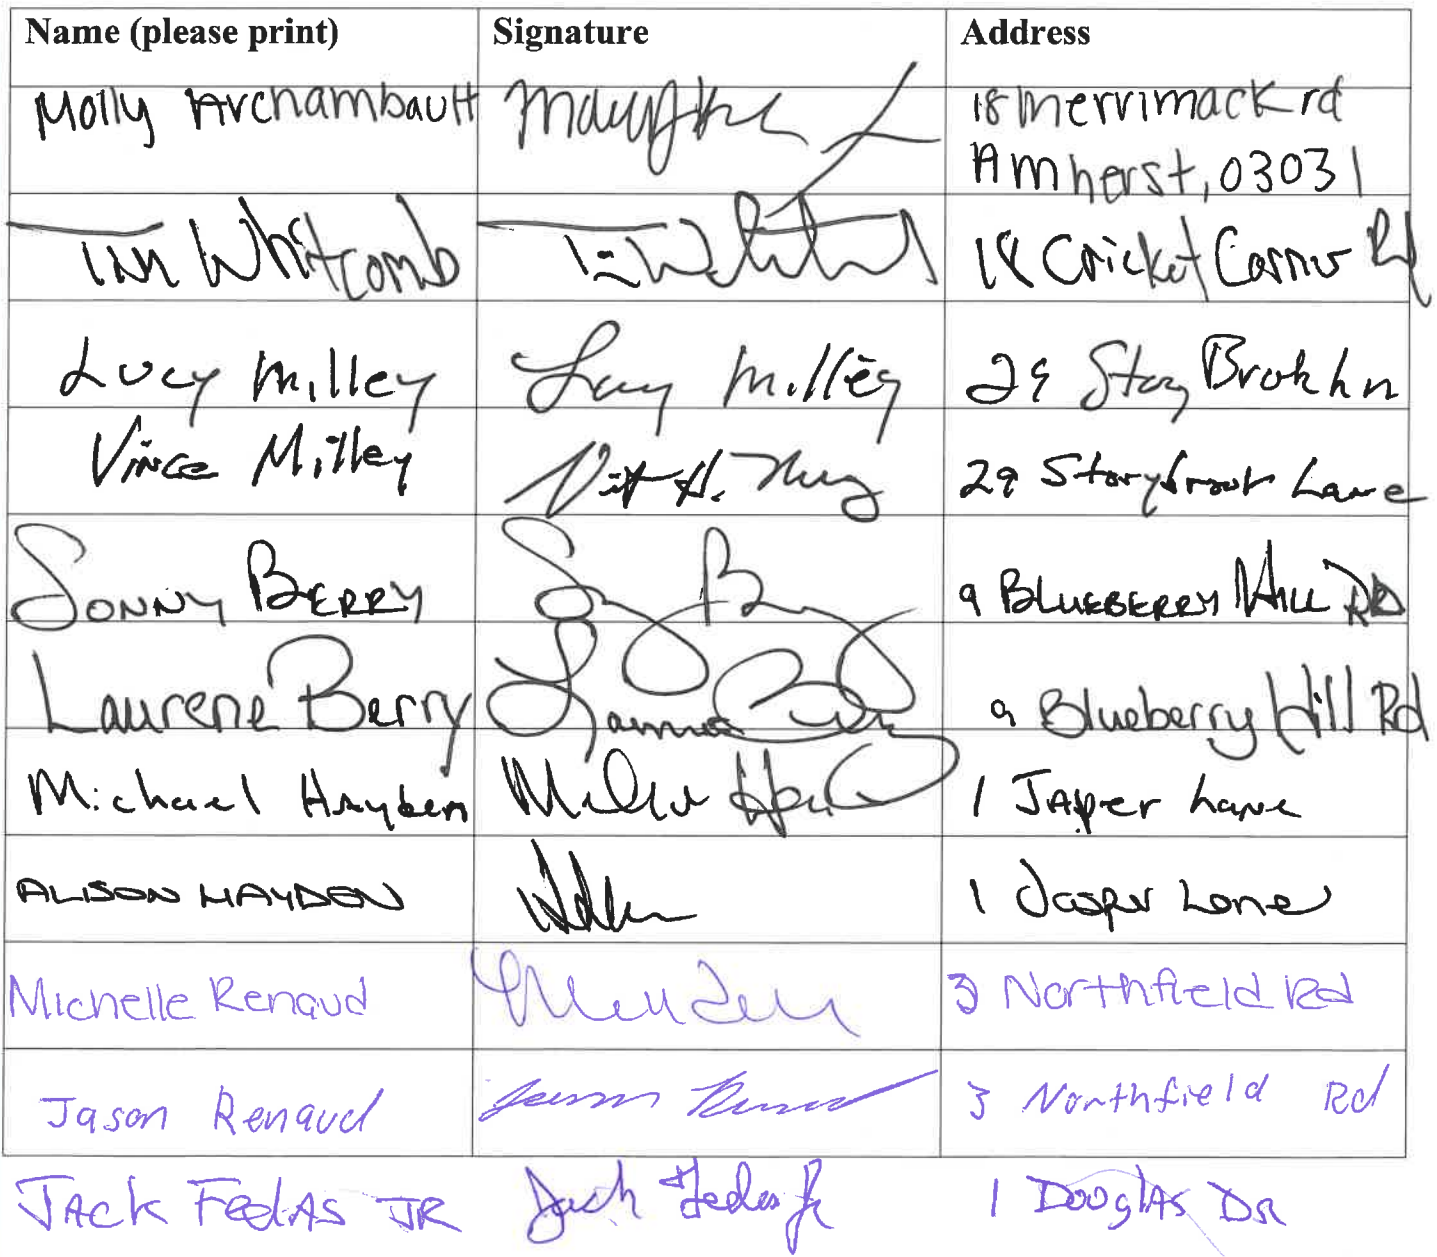 Name (please print) Signature Address
Molly Archambault 18 Merrimack rd
Amherst, 03031
Tim Whitcomb Tim Whitcomb 18 Cricket Corner Rd
Lucy Milley Lucy Milley 29 Story Brook Ln
Vince Milley 29 Storybrook Lane
Sonny Berry 9 Blueberry Hill Rd
Laurene Berry Laurene Berry 9 Blueberry Hill Rd
Michael Hayden 1 Jasper Lane
ALISON HAYDEN 1 Jasper Lane
Michelle Renaud 3 Northfield Rd
Jason Renaud Jason Renaud 3 Northfield Rd
JACK FedAS JR Jack Fedas Jr 1 Douglas DR